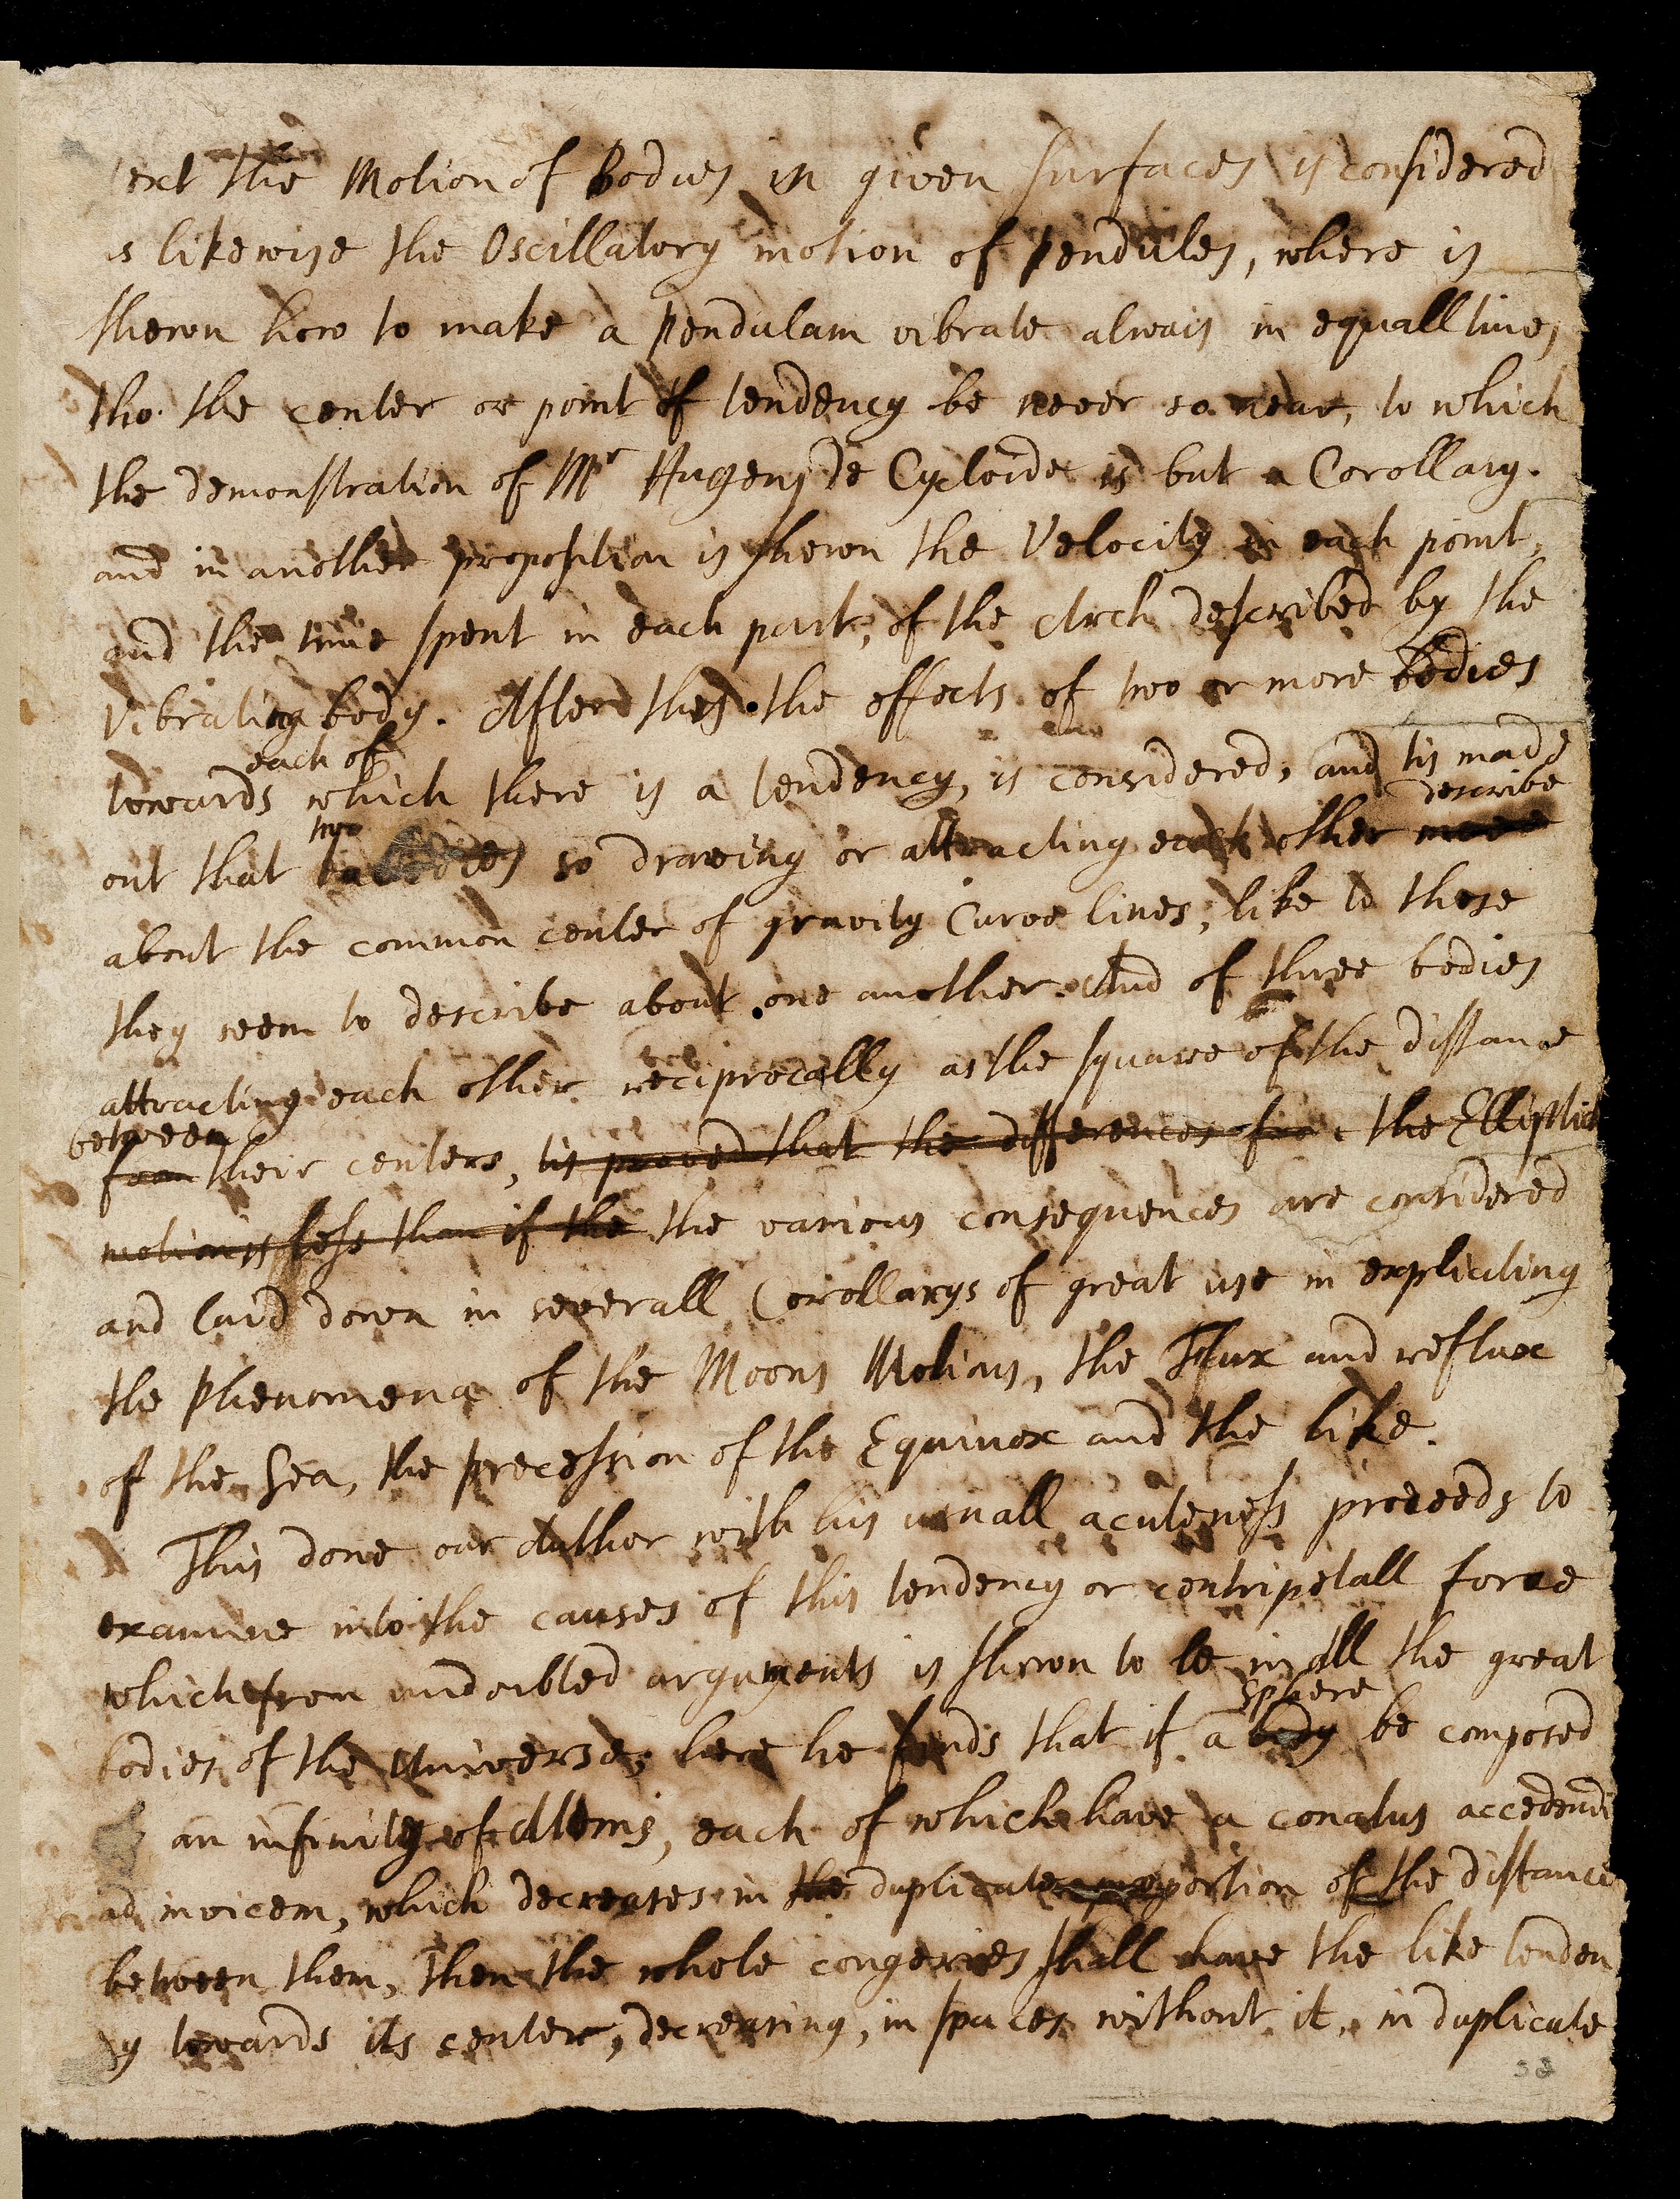 ext the Motion of Bodies in given surfaces is considered
as likewise the Oscillatory motion of pendules, where is
shewn how to make a pendulum vibrate alwais in equall times
tho the center or point of tendency be never so near, to which
the demonstration of Mr Hugens de Cycloide is but a Corollary.
and in another proposition is shewn the Velocity in each point,
and the time spent in each part, of the Arch described by the
Vibrating body. After this the effects of two or more bodies
each of
towards which there is a tendency, is considered, and tis made
two describe
out that bodies so drawing or attracting each other move
about the common center of gravity Curve lines, like to those
they seem to describe about one another. And of three bodies
attracting each other reciprocally as the square of the distance
between
from their centers, tis proved that the differences from the Elliptick
motion is less than if the the various consequences are considered
and laid down in severall Corollarys of great use in explicating
the Phenomena of the Moons Motions, the Flux and reflux
of the Sea, the precession of the Equinox and the like.
This done our Author with his usuall acuteness proceeds to
examine into the causes of this tendency or centripetall force
which from undoubted arguments is shewn to be in all the great
sphere
bodies of the Universe, here he finds that if a body be composed
an infinity of Atoms, each of which have a conatus accedendi
ad invicem, which decreases in the duplicate proportion of the distance
between them, then the whole congeries shall have the like tenden
cy towards its center, decreasing, in spaces without it, in duplicate